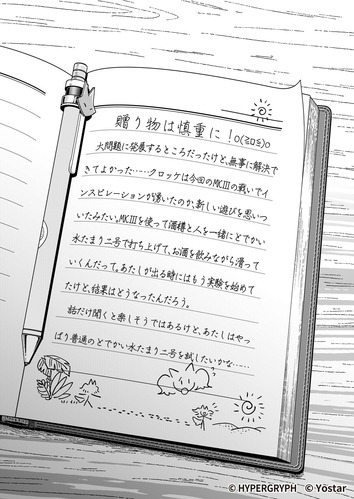 贈り物は慎重に！o(≧ロ≦)o
大問題に発展するところだったけど、無事に解決で
きてよかった……クロッケは今回のMCⅢの戦いでイ
ンスピレーションが湧いたのか、新しい遊びを思いつ
いたみたい。MCⅢを使って酒樽と人を一緒にとでかい
水たまり二号で打ち上げて、お酒を飲みながら滑って
いくんだって。あたしが出る時にはもう実験を始めて
たけど、結果はどうなったんだろう。
話だけ聞くと楽しそうではあるけど、あたしはやっ
ぱり普通のとでかい水たまり二号を試したいかな……
© HYPERGRYPH © Yostar